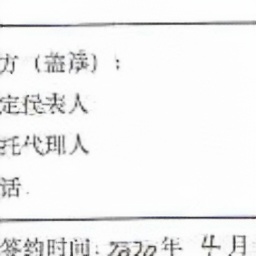 方（盖章）：
定代表人
托代理人
话
签约时间：2020年 4月